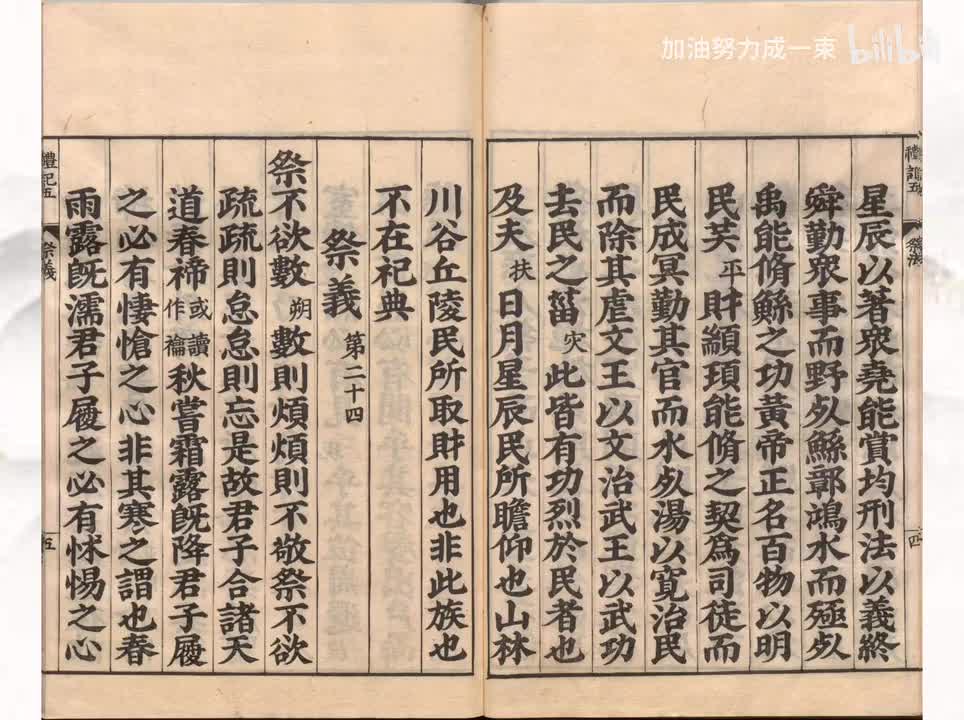 加油努力成一束 bilibili
禮記五 祭法 四
星辰以著衆堯能賞均刑法以義終
舜勤衆事而野死鯀鄣鴻水而殛死
禹能脩鯀之功黃帝正名百物以明
民共平財顓頊能脩之契爲司徒而
民成冥勤其官而水死湯以寬治民
而除其虐文王以文治武王以武功
去民之菑灾此皆有功烈於民者也
及夫扶日月星辰民所瞻仰也山林
川谷丘陵民所取財用也非此族也
不在祀典
祭義 第二十四
祭不欲數朔數則煩煩則不敬祭不欲
疏疏則怠怠則忘是故君子合諸天
道春禘或讀作禴秋嘗霜露旣降君子履
之必有悽愴之心非其寒之謂也春
雨露旣濡君子履之必有怵惕之心
禮記五 祭義 五